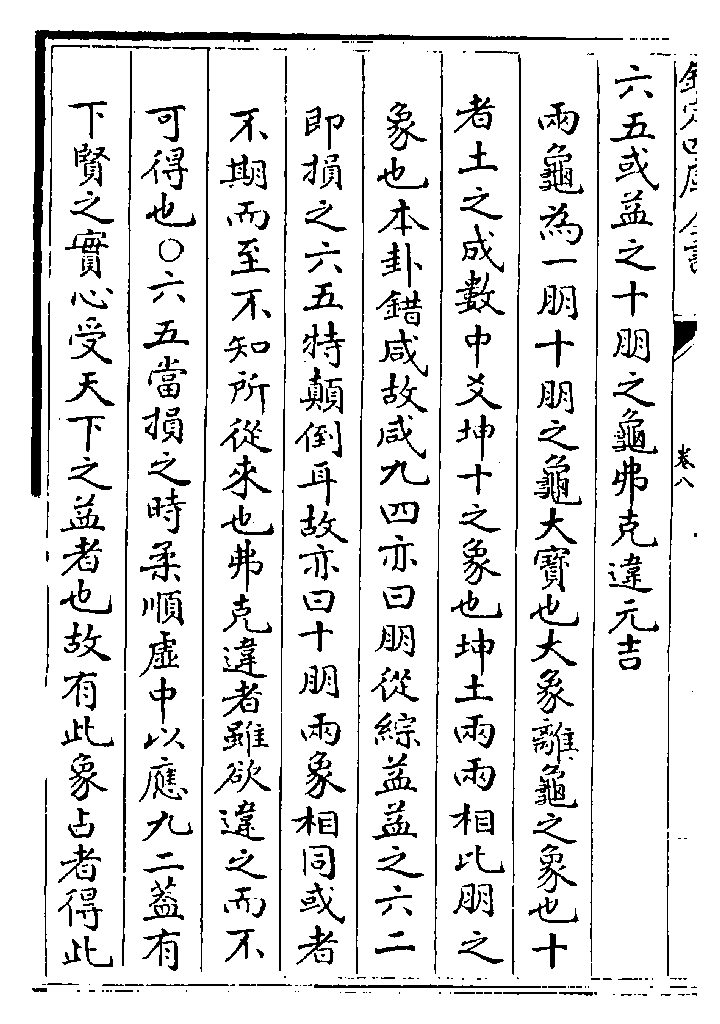 欽定四庫全書
卷八
六五或益之十朋之龜弗克違元吉
兩龜為一朋十朋之龜大寶也大象離龜之象也十
者土之成數中爻坤十之象也坤土兩兩相比朋之
象也本卦錯咸故咸九四亦曰朋從綜益益之六二
即損之六五特顛倒耳故亦曰十朋兩象相同或者
不期而至不知所從來也弗克違者雖欲違之而不
可得也○六五當損之時柔順虛中以應九二蓋有
下賢之實心受天下之益者也故有此象占者得此